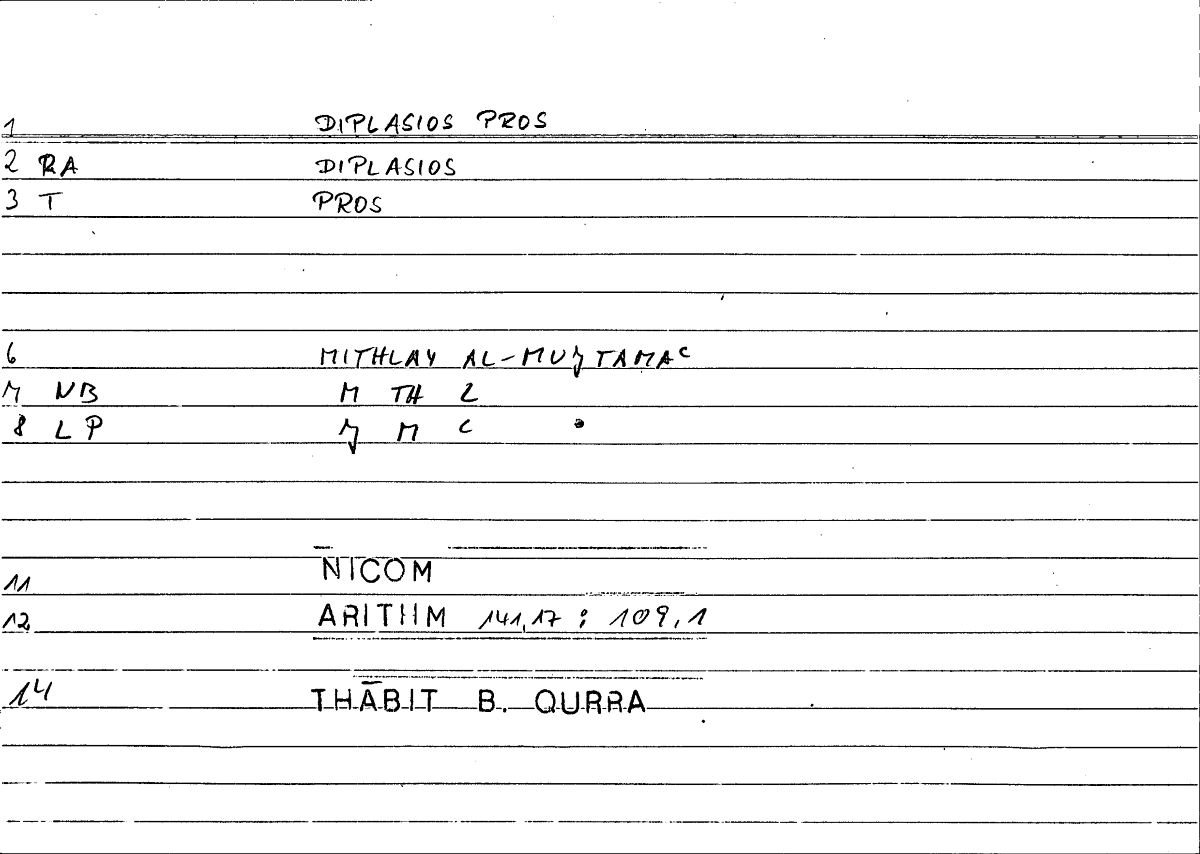 1 DIPLASIOS PROS
2 RA DIPLASIOS
3 T PROS
6 MITHLAY AL-MUǧTAMAᶜ
7 NB M TH L
8 LP ǧ M ᶜ •
11 NICOM
12 ARITHM 141,17 : 109,1
14 THĀBIT B. QURRA